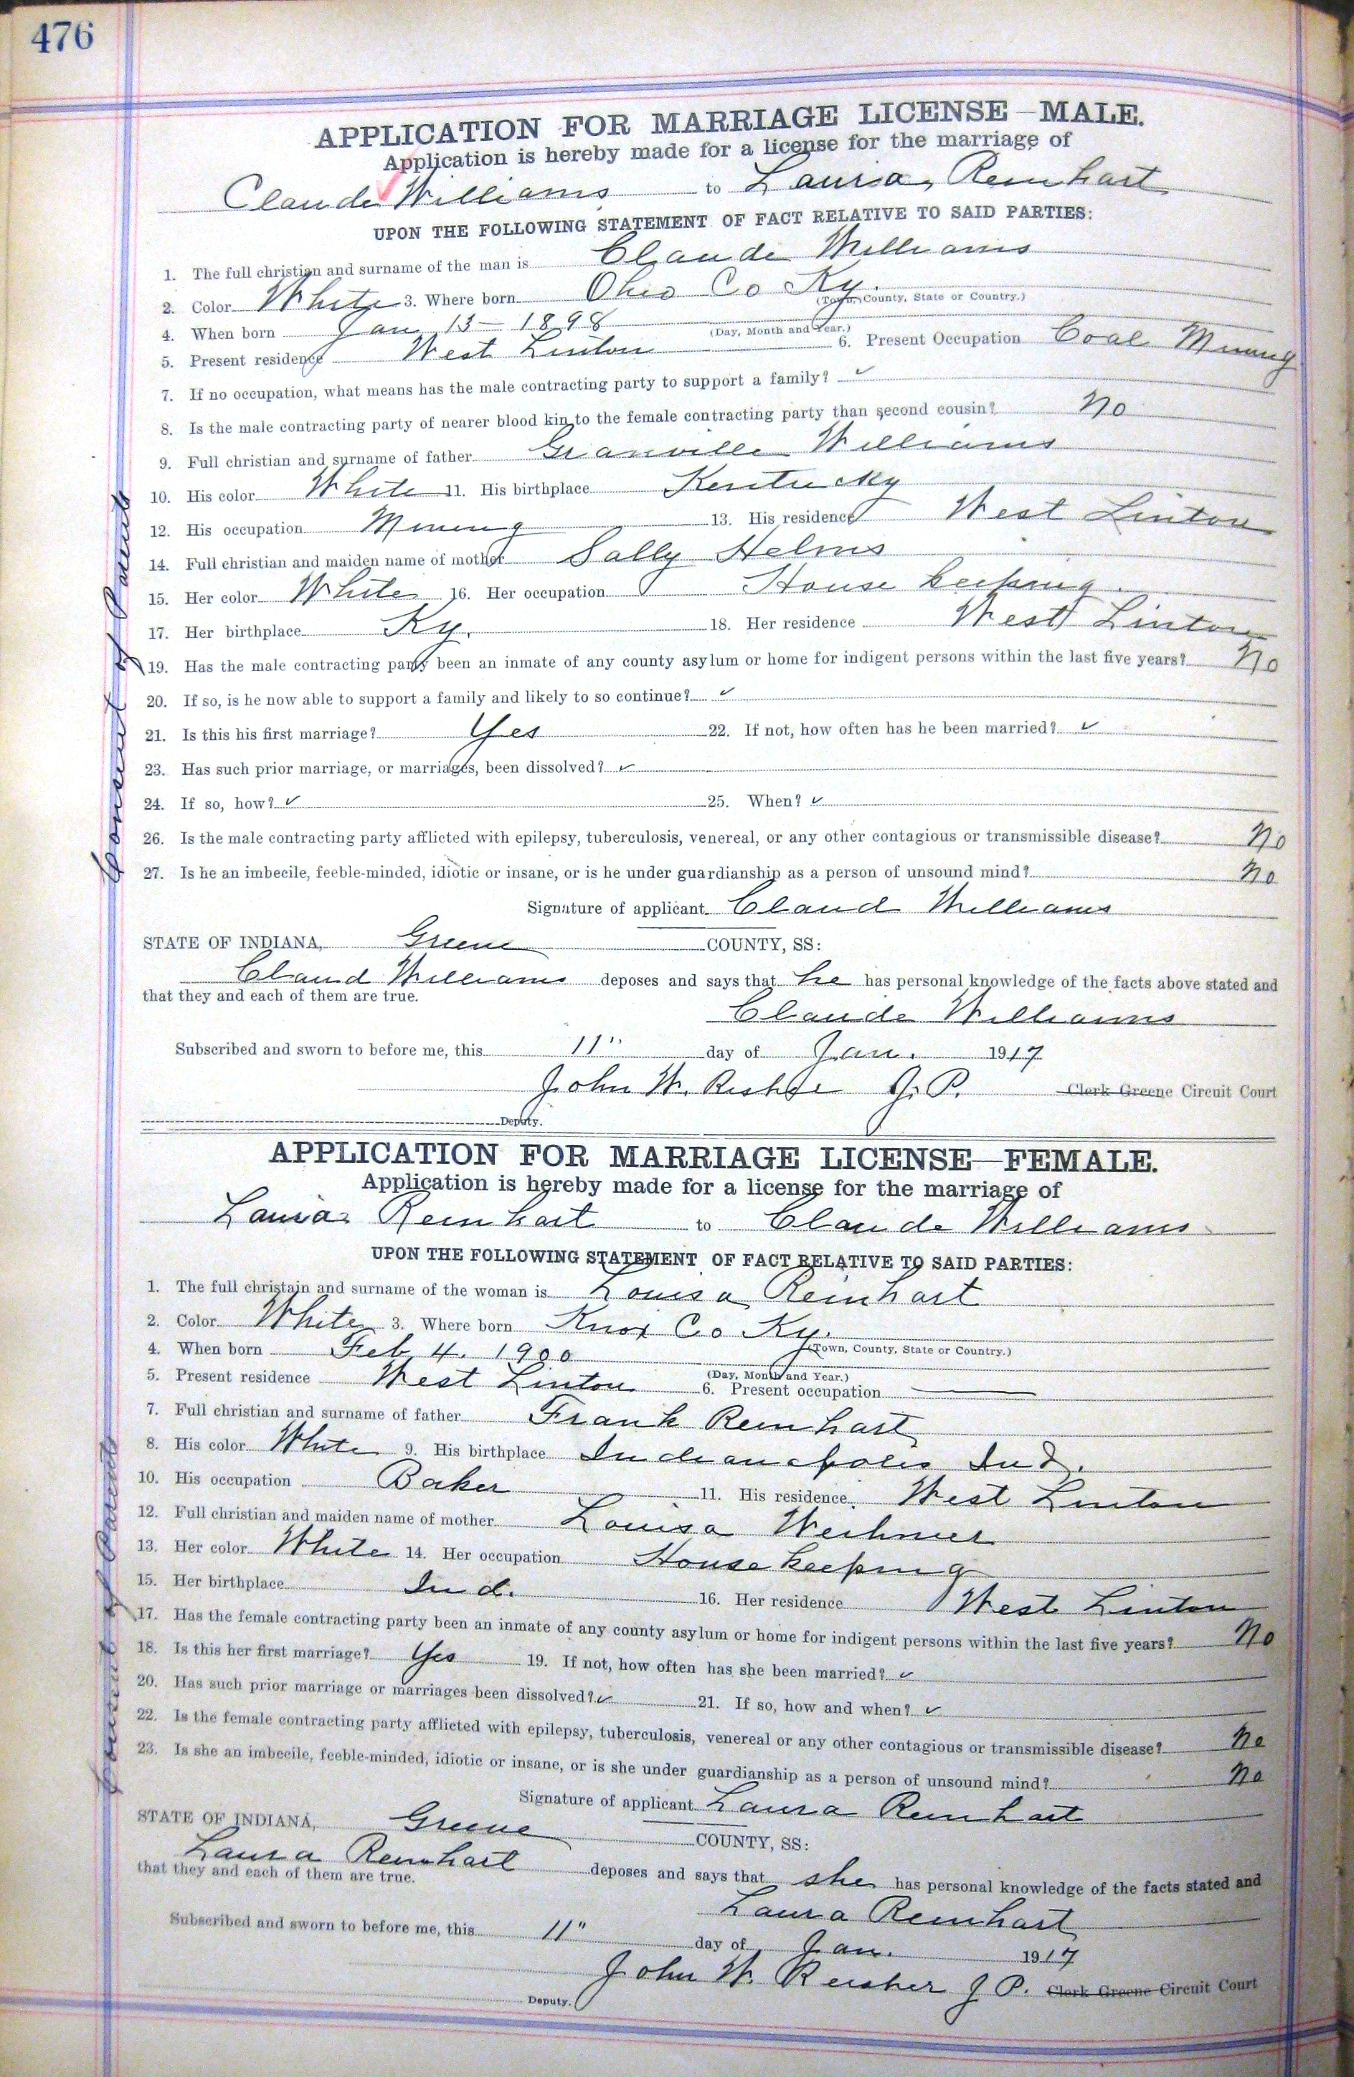 476
APPLICATION FOR MARRIAGE LICENSE—MALE.
Application is hereby made for a license for the marriage of
Claude Williams to Laura Reinhart
UPON THE FOLLOWING STATEMENT OF FACT RELATIVE TO SAID PARTIES:
1. The full christian and surname of the man is Claude Williams
2. Color White 3. Where born Ohio Co Ky.
(Town, County, State or Country.)
4. When born Jan 13 — 1898
(Day, Month and Year.)
5. Present residence West Linton 6. Present Occupation Coal Mining
7. If no occupation, what means has the male contracting party to support a family? ✓
8. Is the male contracting party of nearer blood kin to the female contracting party than second cousin? No
9. Full christian and surname of father Granville Williams
10. His color White 11. His birthplace Kentucky
12. His occupation Mining 13. His residence West Linton
14. Full christian and maiden name of mother Sally Helms
15. Her color White 16. Her occupation House keeping
17. Her birthplace Ky. 18. Her residence West Linton
19. Has the male contracting party been an inmate of any county asylum or home for indigent persons within the last five years? No
20. If so, is he now able to support a family and likely to so continue? ✓
21. Is this his first marriage? Yes 22. If not, how often has he been married? ✓
23. Has such prior marriage, or marriages, been dissolved? ✓
24. If so, how? ✓ 25. When? ✓
26. Is the male contracting party afflicted with epilepsy, tuberculosis, venereal, or any other contagious or transmissible disease? No
27. Is he an imbecile, feeble-minded, idiotic or insane, or is he under guardianship as a person of unsound mind? No
Signature of applicant. Claud Williams
STATE OF INDIANA, Greene COUNTY, SS:
Claud Williams deposes and says that he has personal knowledge of the facts above stated and
that they and each of them are true.
Claude Williams
Subscribed and sworn to before me, this 11" day of Jan. 1917
John W. J. P. Clerk Greene Circuit Court
Deputy.
Consent of Parents
APPLICATION FOR MARRIAGE LICENSE—FEMALE.
Application is hereby made for a license for the marriage of
Laura Reinhart to Claude Williams
UPON THE FOLLOWING STATEMENT OF FACT RELATIVE TO SAID PARTIES:
1. The full christain and surname of the woman is Louisa Reinhart
2. Color White 3. Where born Knox Co Ky.
(Town, County, State or Country.)
4. When born Feb 4. 1900
(Day, Month and Year.)
5. Present residence West Linton 6. Present occupation —
7. Full christian and surname of father Frank Reinhart
8. His color White 9. His birthplace Indianapolis Ind.
10. His occupation Baker 11. His residence West Linton
12. Full christian and maiden name of mother Louisa
13. Her color White 14. Her occupation House keeping
15. Her birthplace Ind. 16. Her residence West Linton
17. Has the female contracting party been an inmate of any county asylum or home for indigent persons within the last five years? No
18. Is this her first marriage? Yes 19. If not, how often has she been married? ✓
20. Has such prior marriage or marriages been dissolved? ✓ 21. If so, how and when? ✓
22. Is the female contracting party afflicted with epilepsy, tuberculosis, venereal or any other contagious or transmissible disease? No
23. Is she an imbecile, feeble-minded, idiotic or insane, or is she under guardianship as a person of unsound mind? No
Signature of applicant Laura Reinhart
STATE OF INDIANA, Greene COUNTY, SS:
Laura Reinhart deposes and says that she has personal knowledge of the facts stated and
that they and each of them are true.
Laura Reinhart
Subscribed and sworn to before me, this 11" day of Jan. 1917
John W. Reisher J P. Clerk Greene Circuit Court
Deputy.
Consent of Parents